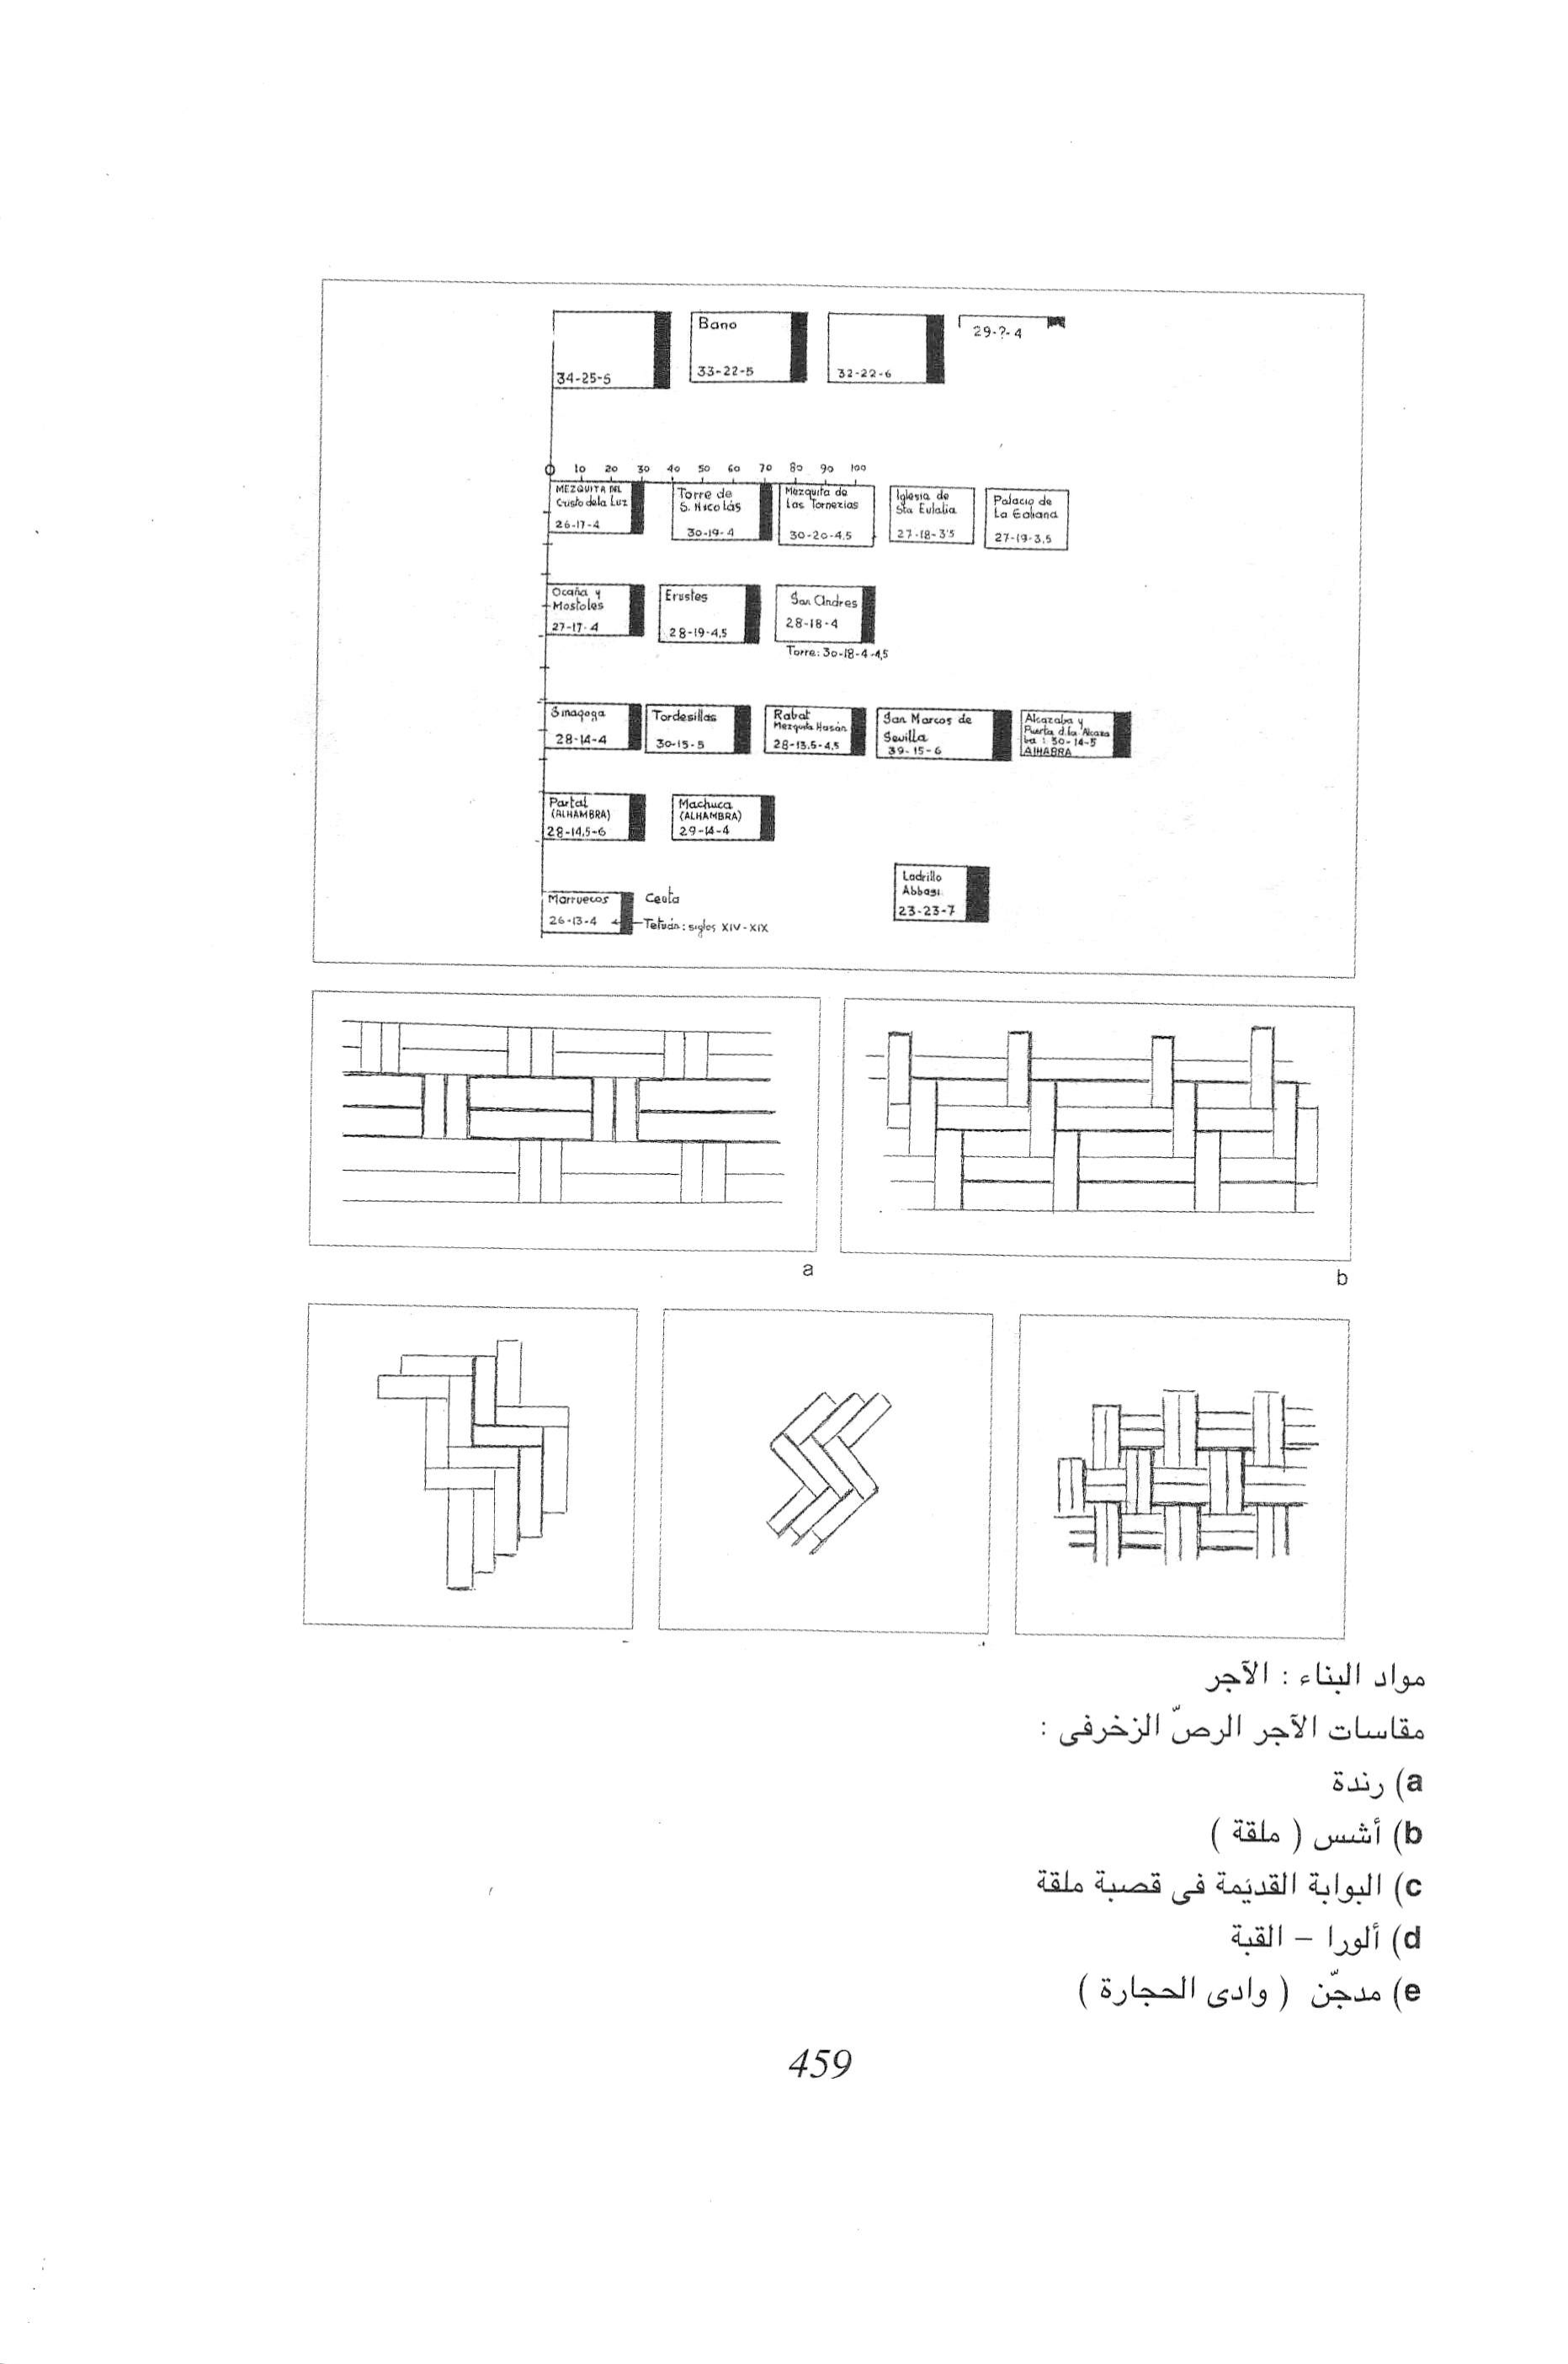 34-25-5
Bano
33-22-5
32-22-6
29-?-4
0 10 20 30 40 50 60 70 80 90 100
MEZQUITA DEL
Cristo de la Luz
26-17-4
Torre de
S. Nicolás
30-19-4
Mezquita de
Las Tornerias
30-20-4.5
Iglesia de
Sta Eulalia
27-18-3'5
Palacio de
La Galiana
27-19-3,5
Ocaña y
Mostoles
27-17-4
Erustes
28-19-4,5
San Andres
28-18-4
Torre: 30-18-4-4,5
Sinagoga
28-14-4
Tordesillas
30-15-5
Rabat
Mezquita Hasán
28-13.5-4.5
San Marcos de
Sevilla
39-15-6
Alcazaba y
Puerta d. la Alcaza
ba: 30-14-5
ALHABRA
Partal
(ALHAMBRA)
28-14,5-6
Machuca
(ALHAMBRA)
29-14-4
Ladrillo
Abbasi
23-23-7
Marruecos
26-13-4
Ceuta
Tetuán: siglos XIV-XIX
a
b
مواد البناء : الآجر
مقاسات الآجر الرصّ الزخرفى :
a) رندة
b) أشس ( ملقة )
c) البوابة القديمة فى قصبة ملقة
d) ألورا – القبة
e) مدجّن ( وادى الحجارة )
459